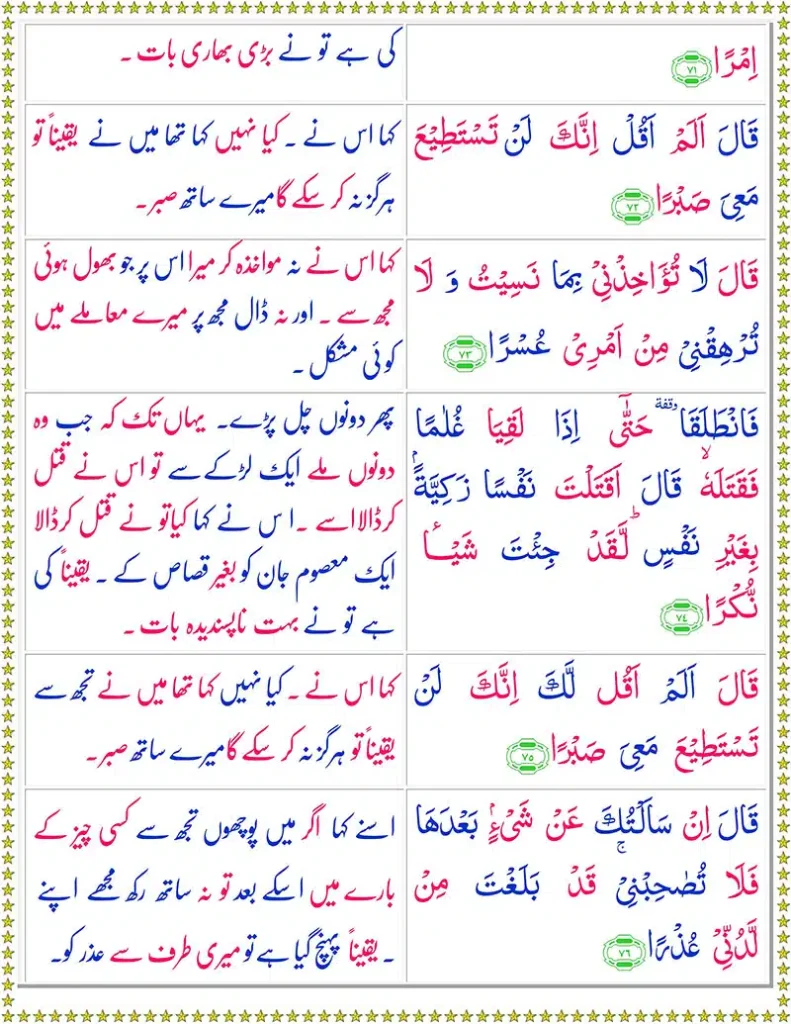 اِمْرًا ﴿٧١﴾
کی ہے تو نے بڑی بھاری بات ۔
قَالَ اَلَمْ اَقُلْ اِنَّكَ لَنْ تَسْتَطِيْعَ
مَعِىَ صَبْرًا ﴿٧٢﴾
کہا اس نے ۔ کیا نہیں کہا تھا میں نے یقیناً تو
ہرگز نہ کر سکے گا میرے ساتھ صبر۔
قَالَ لَا تُؤَاخِذْنِىْ بِمَا نَسِيْتُ وَ لَا
تُرْهِقْنِىْ مِنْ اَمْرِىْ عُسْرًا ﴿٧٣﴾
کہا اس نے نہ مواخذہ کر میرا اس پر جو بھول ہوئی
مجھ سے ۔ اور نہ ڈال مجھ پر میرے معاملے میں
کوئی مشکل ۔
فَانْطَلَقَا وقفة حَتّٰٓى اِذَا لَقِيَا غُلٰمًا
فَقَتَلَهٗ ۙ قَالَ اَقَتَلْتَ نَفْسًا زَكِيَّةًۢ
بِغَيْرِ نَفْسٍ ؕ لَقَدْ جِئْتَ شَيْـًٔا
نُّكْرًا ﴿٧٤﴾
پھر دونوں چل پڑے۔ یہاں تک کہ جب وہ
دونوں ملے ایک لڑکے سے تو اس نے قتل
کرڈالا اسے ۔ ا س نے کہا کیا تو نے قتل کرڈالا
ایک معصوم جان کو بغیر قصاص کے ۔ یقیناً کی
ہے تو نے بہت ناپسندیدہ بات ۔
قَالَ اَلَمْ اَقُل لَّكَ اِنَّكَ لَنْ
تَسْتَطِيْعَ مَعِىَ صَبْرًا ﴿٧٥﴾
کہا اس نے ۔ کیا نہیں کہا تھا میں نے تجھ سے
یقیناً تو ہرگز نہ کر سکے گا میرے ساتھ صبر۔
قَالَ اِنْ سَاَلْتُكَ عَنْ شَىْءٍۢ بَعْدَهَا
فَلَا تُصٰحِبْنِىْ ۚ قَدْ بَلَغْتَ مِنْ
لَّدُنِّىْ عُذْرًا ﴿٧٦﴾
اسنے کہا اگر میں پوچھوں تجھ سے کسی چیز کے
بارے میں اسکے بعد تو نہ ساتھ رکھ مجھے اپنے
۔ یقیناً پہنچ گیا ہے تو میری طرف سے عذر کو۔